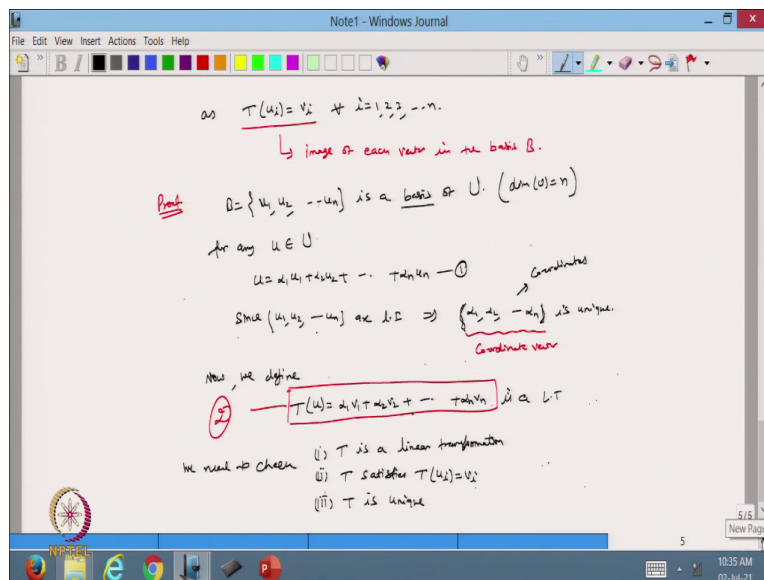 Note1 - Windows Journal
File Edit View Insert Actions Tools Help
as T(ui) = vi ∀ i=1,2,3, --- n.
↳ image of each vector in the basis B.
Proof B = {u1, u2, --- un} is a basis of U. (dim(U)=n)
for any u ∈ U
u = α1u1 + α2u2 + --- + αnun — ①
Coordinates
Since {u1, u2, --- un} are L.I ⇒ {α1, α2, --- αn} is unique.
Coordinate vector
Now, we define
② — T(u) = α1v1 + α2v2 + --- + αnvn is a L.T
We need to check (i) T is a linear transformation
(ii) T satisfies T(ui) = vi
(iii) T is unique
NPTEL
5/5
New Page
5
10:35 AM
02-Jul-21